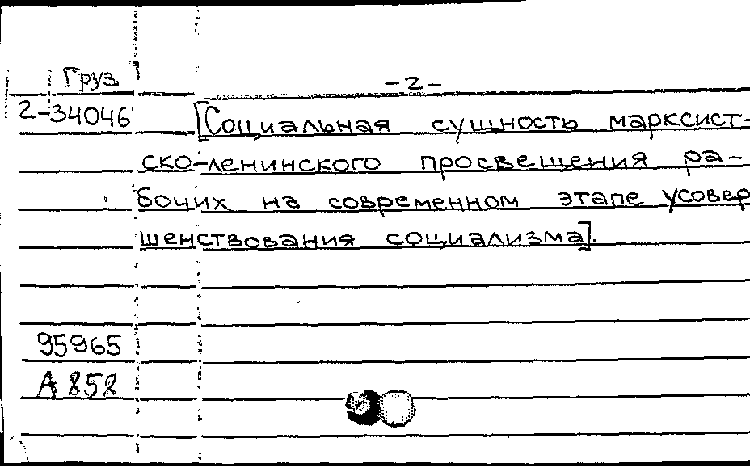 Груз -2-
2-34046 [Социальная сущность марксист-
ско-ленинского просвещения ра-
бочих на современном этапе усовер
шенствования социализма].
95965
А 858